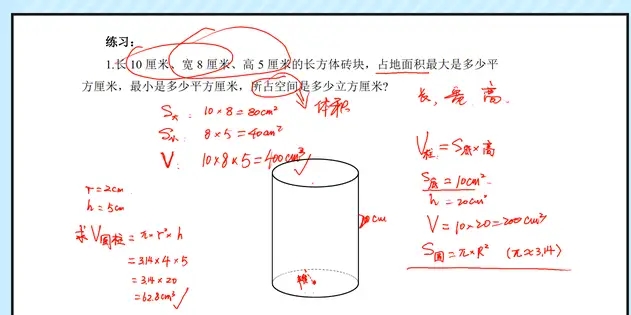 练习:
1.长 10 厘米、宽 8 厘米、高 5 厘米的长方体砖块，占地面积最大是多少平
方厘米，最小是多少平方厘米，所占空间是多少立方厘米?
S大: 10×8=80cm²
体积
S小: 8×5=40cm²
V: 10×8×5=400cm³
长, 宽, 高
V柱=S底×高
S底=10cm²
h=20cm
V=10×20=200cm³
S圆=π×R² (π≈3.14)
r=2cm
h=5cm
求V圆柱=π×r²×h
=3.14×4×5
=3.14×20
=62.8cm³